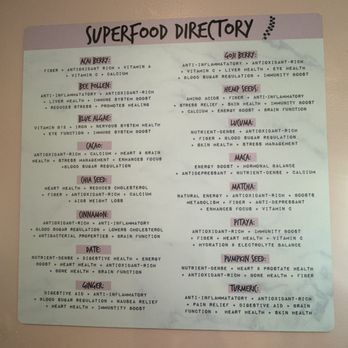 SUPERFOOD DIRECTORY
ACAI BERRY:
FIBER + ANTIOXIDANT-RICH + VITAMIN A
+ VITAMIN C + CALCIUM
BEE POLLEN:
ANTI-INFLAMMATORY + ANTIOXIDANT-RICH
+ LIVER HEALTH + IMMUNE SYSTEM BOOST
+ REDUCED STRESS + PROMOTES HEALING
BLUE ALGAE:
VITAMIN B12 + IRON + NERVOUS SYSTEM HEALTH
EYE FUNCTION + IMMUNITY BOOST
CACAO:
ANTIOXIDANT-RICH + CALCIUM + HEART & BRAIN
HEALTH + STRESS MANAGEMENT + ENHANCED FOCUS
+BLOOD SUGAR REGULATION
CHIA SEED:
HEART HEALTH + REDUCED CHOLESTEROL
+ FIBER + ANTIOXIDANT-RICH + CALCIUM
+ AIDS WEIGHT LOSS
CINNAMON:
ANTIOXIDANT-RICH + ANTI-INFLAMMATORY
+ BLOOD SUGAR REGULATION + LOWERS CHOLESTEROL
+ ANTIBACTERIAL PROPERTIES + BRAIN FUNCTION
DATE:
NUTRIENT-DENSE + DIGESTIVE HEALTH + ENERGY
BOOST + HEART HEALTH + ANTIOXIDANT-RICH
+ BONE HEALTH + BRAIN FUNCTION
GINGER:
DIGESTIVE AID + ANTI-INFLAMMATORY
+ BLOOD SUGAR REGULATION + NAUSEA RELIEF
+ HEART HEALTH + IMMUNITY BOOST
GOJI BERRY:
ANTI-INFLAMMATORY + ANTIOXIDANT-RICH
+ VITAMIN C + LIVER HEALTH + EYE HEALTH
+ BLOOD SUGAR REGULATION + IMMUNITY BOOST
HEMP SEEDS:
AMINO ACIDS + FIBER + ANTI-INFLAMMATORY
+ STRESS RELIEF + SKIN HEALTH + IMMUNITY BOOST
+ CALCIUM + ENERGY BOOST + BRAIN FUNCTION
LUCUMA:
NUTRIENT-DENSE + ANTIOXIDANT-RICH
+ FIBER + BLOOD SUGAR REGULATION
+ SKIN HEALTH + STRESS MANAGEMENT
MACA:
ENERGY BOOST + HORMONAL BALANCE
+ ANTIDEPRESSANT + NUTRIENT-DENSE + CALCIUM
MATCHA:
NATURAL ENERGY + ANTIOXIDANT-RICH + BOOSTS
METABOLISM + FIBER + ANTI-DEPRESSANT
+ ENHANCES FOCUS + VITAMIN C
PITAYA:
ANTIOXIDANT-RICH + IMMUNITY BOOST
+ FIBER + HEART HEALTH + VITAMIN C
+ HYDRATION & ELECTROLYTE BALANCE
PUMPKIN SEED:
NUTRIENT-DENSE + HEART & PROSTATE HEALTH
+ ANTIOXIDANT-RICH + BONE HEALTH + FIBER
TURMERIC:
ANTI-INFLAMMATORY + ANTIOXIDANT-RICH
+ PAIN RELIEF + DIGESTIVE AID + BRAIN
FUNCTION + HEART HEALTH + SKIN HEALTH